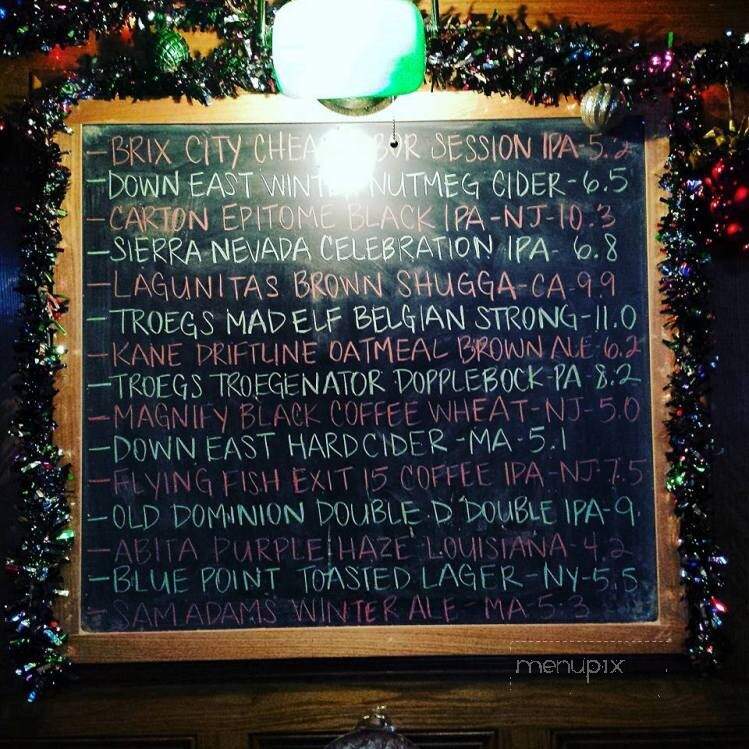 - BRIX CITY SESSION IPA - 5.2
- DOWN EAST NUTMEG CIDER - 6.5
- CARTON EPITOME BLACK IPA - NJ - 10.3
- SIERRA NEVADA CELEBRATION IPA - 6.8
- LAGUNITAS BROWN SHUGGA - CA - 9.9
- TROEGS MAD ELF BELGIAN STRONG - 11.0
- KANE DRIFTLINE OATMEAL BROWN ALE - 6.2
- TROEGS TROEGENATOR DOPPLEBOCK - PA - 8.2
- MAGNIFY BLACK COFFEE WHEAT - NJ - 5.0
- DOWN EAST HARD CIDER - MA - 5.1
- FLYING FISH EXIT 15 COFFEE IPA - NJ - 7.5
- OLD DOMINION DOUBLE D DOUBLE IPA - 9.
- ABITA PURPLE HAZE LOUISIANA - 4.2
- BLUE POINT TOASTED LAGER - NY - 5.5
- SAM ADAMS WINTER ALE - MA - 5.3
menupix